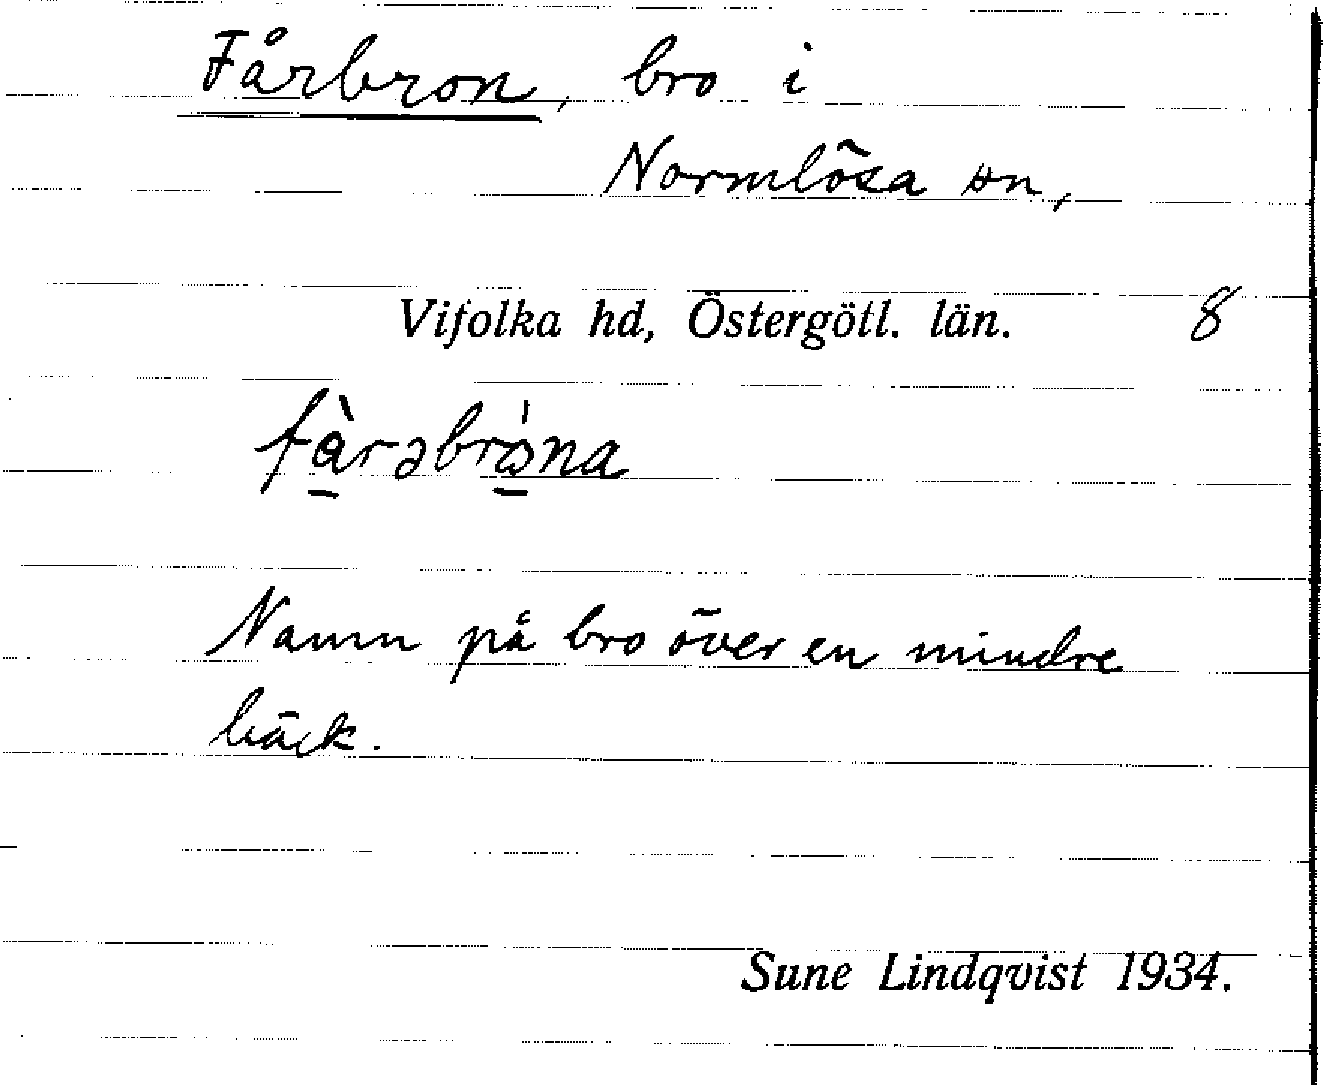 Fårbron, bro i
Normlösa sn,
Vifolka hd, Östergötl. län. 8
Namn på bro över en mindre
bäck.
Sune Lindqvist 1934.